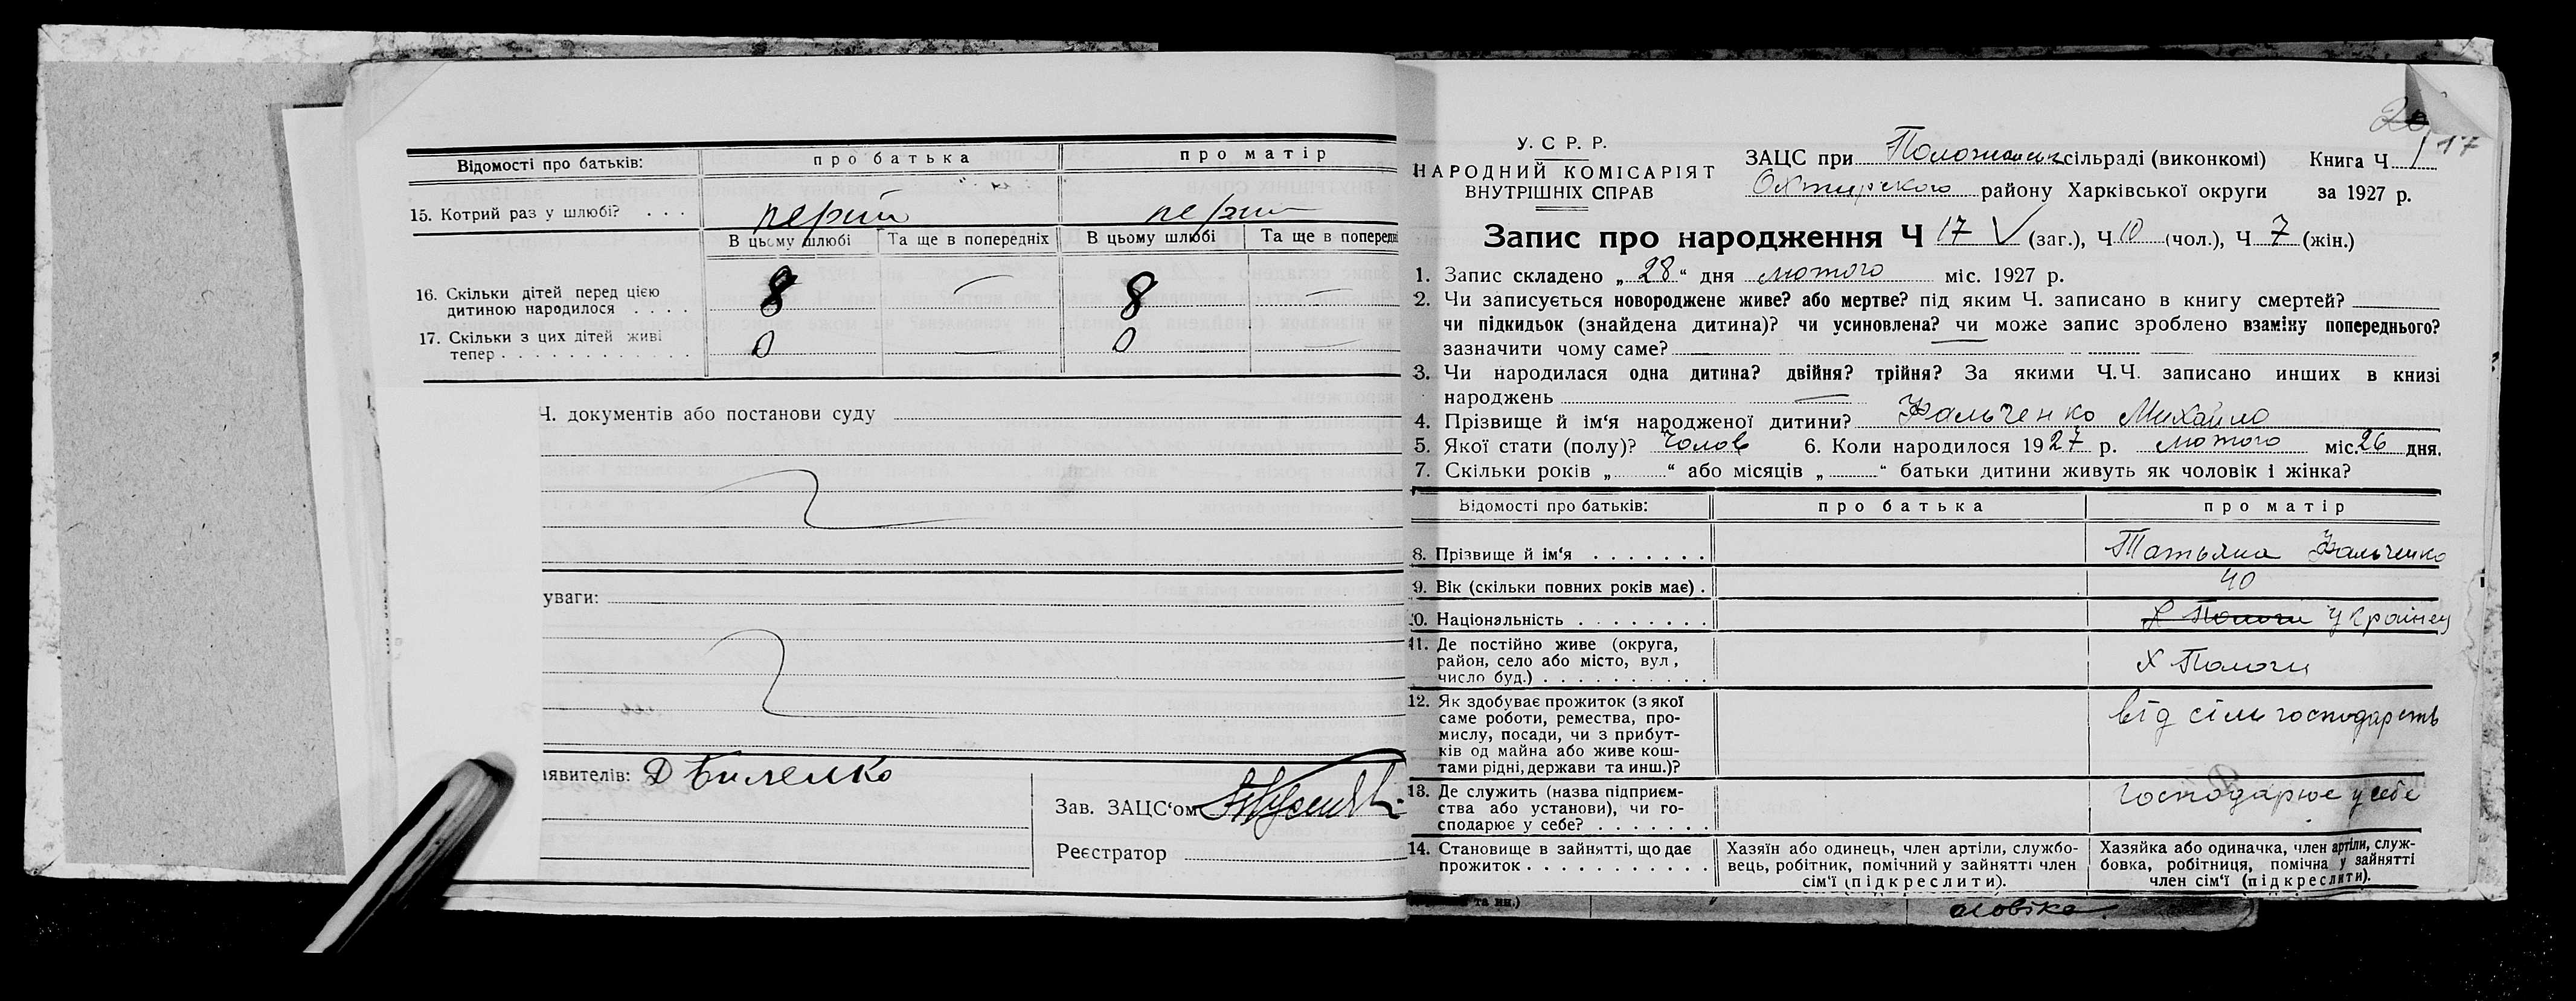 Відомості про батьків: про батька про матір
15. Котрий раз у шлюбі? . . . перший
В цьому шлюбі Та ще в попередніх В цьому шлюбі Та ще в попередні
16. Скільки дітей перед цією
дитиною народилося . . . . 8 — 8 —
17. Скільки з цих дітей живі
тепер . . . . . . . . . . . . . 0 — 0 —
Ч. документів або постанови суду
уваги:
аявителів:
Зав. ЗАЦС‘ом
Реєстратор
20
17
У. С Р. Р.
НАРОДНИЙ КОМІСАРІЯТ
ВНУТРІШНІХ СПРАВ
ЗАЦС при сільраді (виконкомі) Книга Ч 1
Охтирского району Харківської округи за 1927 р.
Запис про народження Ч 17 (заг.), Ч 10 (чол.), Ч 7 (жін.)
1. Запис складено „ 28 “ дня лютого міс. 1927 р.
2. Чи записується новороджене живе? або мертве? під яким Ч. записано в книгу смертей?
чи підкидьок (знайдена дитина)? чи усиновлена? чи може запис зроблено взаміну попереднього?
зазначити чому саме?
3. Чи народилася одна дитина? двійня? трійня? За якими Ч.Ч. записано инших в книзі
народжень —
4. Прізвище й ім‘я народженої дитини? Михайло
5. Якої стати (полу)? Чолов 6. Коли народилося 1927 р. лютого міс. 26 дня.
7. Скільки років „ “ або місяців „ “ батьки дитини живуть як чоловік і жінка?
Відомості про батьків: про батька про матір
8. Прізвище й ім‘я . . . . . . . Татьяна
9. Вік (скільки повних років має) . 40
10. Національність . . . . . . . . Українец
11. Де постійно живе (округа,
район, село або місто, вул,
число буд.) . . . . . . . . . . Х Пологи
12. Як здобуває прожиток (з якої
саме роботи, ремества, про-
мислу, посади, чи з прибут-
ків од майна або живе кош-
тами рідні, держави та инш.)? від сіль господарств
13. Де служить (назва підприєм-
ства або установи), чи го-
сподарює у себе? . . . . . . . господарює у себе
14. Становище в зайнятті, що дає
прожиток . . . . . . . . . . . .
Хазяїн або одинець, член артіли, службо-
вець, робітник, помічний у зайнятті член
сім‘ї (підкреслити).
Хазяйка або одиначка, член артіли, служ-
бовка, робітниця, помічна у зайнятті
член сім‘ї (підкреслити).
та ин.)